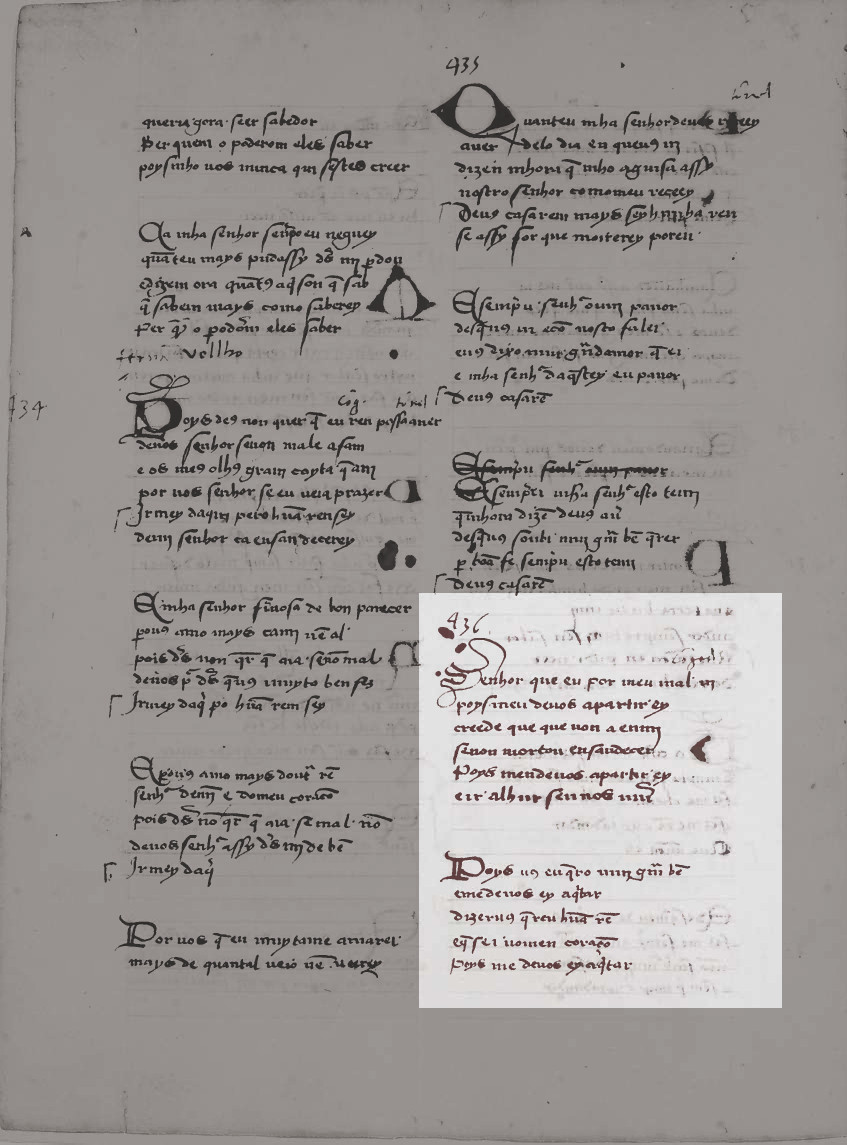 queria gora seer sabedor
Per quem o poderom eles saber
poys mho uos nunca quisestes creer
Ca mha senhor senpreu neguey
quāteu mays pud assy ds mi pdon
e dizem ora quātꝯ aq̄ son q̄ sab
q̄ sabem mays como saberey
Per q̄ o podōm eles saber
vellho
434
Poys deꝯ non quer q̄ eu ren possa auer
deuos senhor senon mal e afam
e os meꝯ olhꝯ gram coyta q̄ am
por uos senhor se eu ueia prazer
Irmey daquī pero hūa ren sey
de mī senhor ca ensandecerey
E mha senhor fremosa de bon parecer
pouꝯ amo mays cami nē al
pois ds non qr q̄ aia senō mal
deuos p ds q̄ uꝯ muyto ben fez
Irmey daq̄ po hūa rem sey
E pouꝯ amo mays doutra rē
senhr de mī e do meu coraçō
pois ds nō qr q̄ aia se mal nō
deuos senhr assy ds mi de bē
Irmey daq̄
Por uos q̄ eu muyt ame amarei
mays de quant al ueio nē ueerey
435
Quanteu mha senhor deuos recey
auer delo dia en que uꝯ ui
dizen mhora q̄ mho aguisa assy
nostro senhor como meu receey
Deuꝯ casarem mays seyh mha ren
se assy for que morterey poren
E sempreu senhr ouui pauor
desq̄ uꝯ ui e cō uosco falei
e uꝯ dixo mui grādamor q̄ ei
e mha senhr daq̄stey eu pauor
Deuꝯ casarē
E sempreu senhr ouui pauor
E sempreu mha senhr esto temi
q̄ mhora dizē deuꝯ auer
desq̄ uꝯ soubi mui grā bē q̄rer
p bōa fe sempreu esto temi
Deuꝯ casarē
436
Senhor que eu por meu mal ui
poys meu deuos apartir ey
creede que que non a em mi
senon mort ou ensandecer
Poys meu deuos apartir ey
e ir alhur sen uos uiuer
Poys uꝯ eu q̄ro mui grā bē
e me deuos ey aq̄tar
dizer uꝯ q̄reu hūa rē
e q̄ sei no meu coraçō
Poys me deuos ey a q̄tar